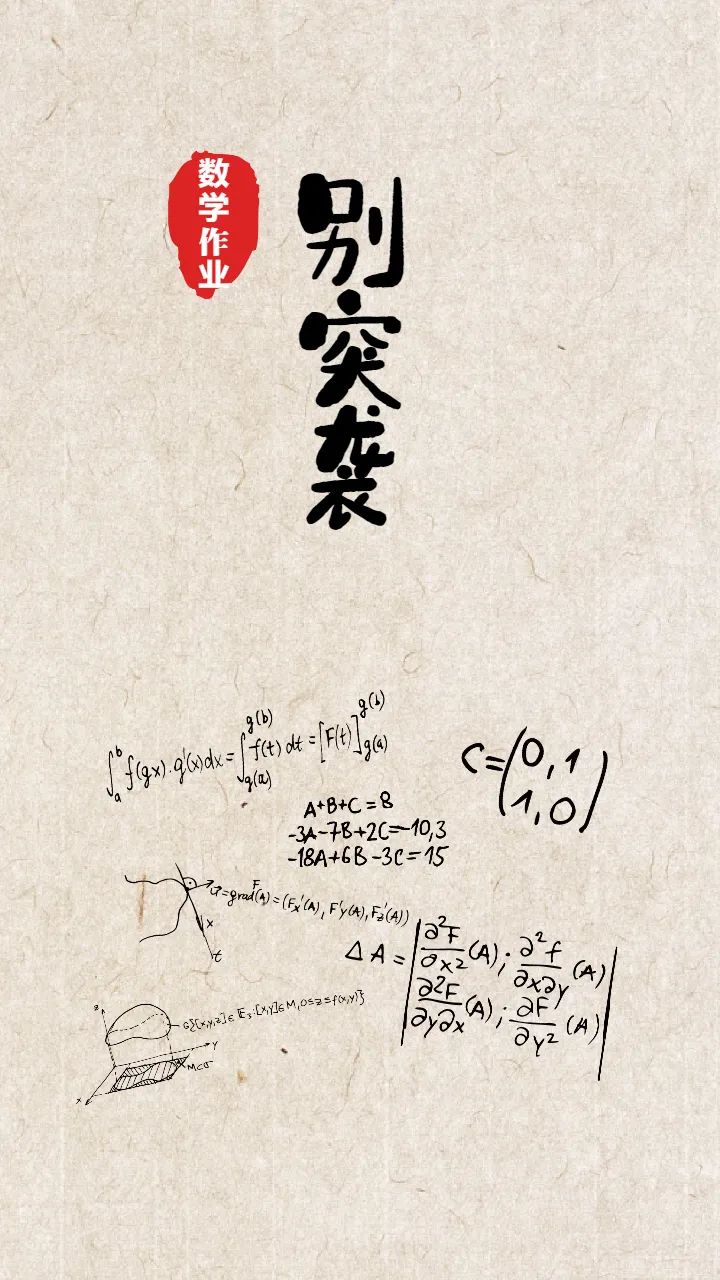 数学作业
别突袭
∫_a^b f(gx).g'(x)dx=∫_{g(a)}^{g(b)} f(t) dt=[F(t)]_{g(a)}^{g(b)}
C=(0,1
1,0)
A+B+C=8
-3A-7B+2C=-10,3
-18A+6B-3C=15
=grad F(A)=(Fx'(A), F'y(A), Fz'(A))
x
t
ΔA=|∂²F/∂x²(A); ∂²f/∂x∂y(A)
∂²F/∂y∂x(A); ∂F/∂y²(A)|
z
G{[x,y,z]∈E₃:[x,y]∈M,0≤z≤f(x,y)}
y
x